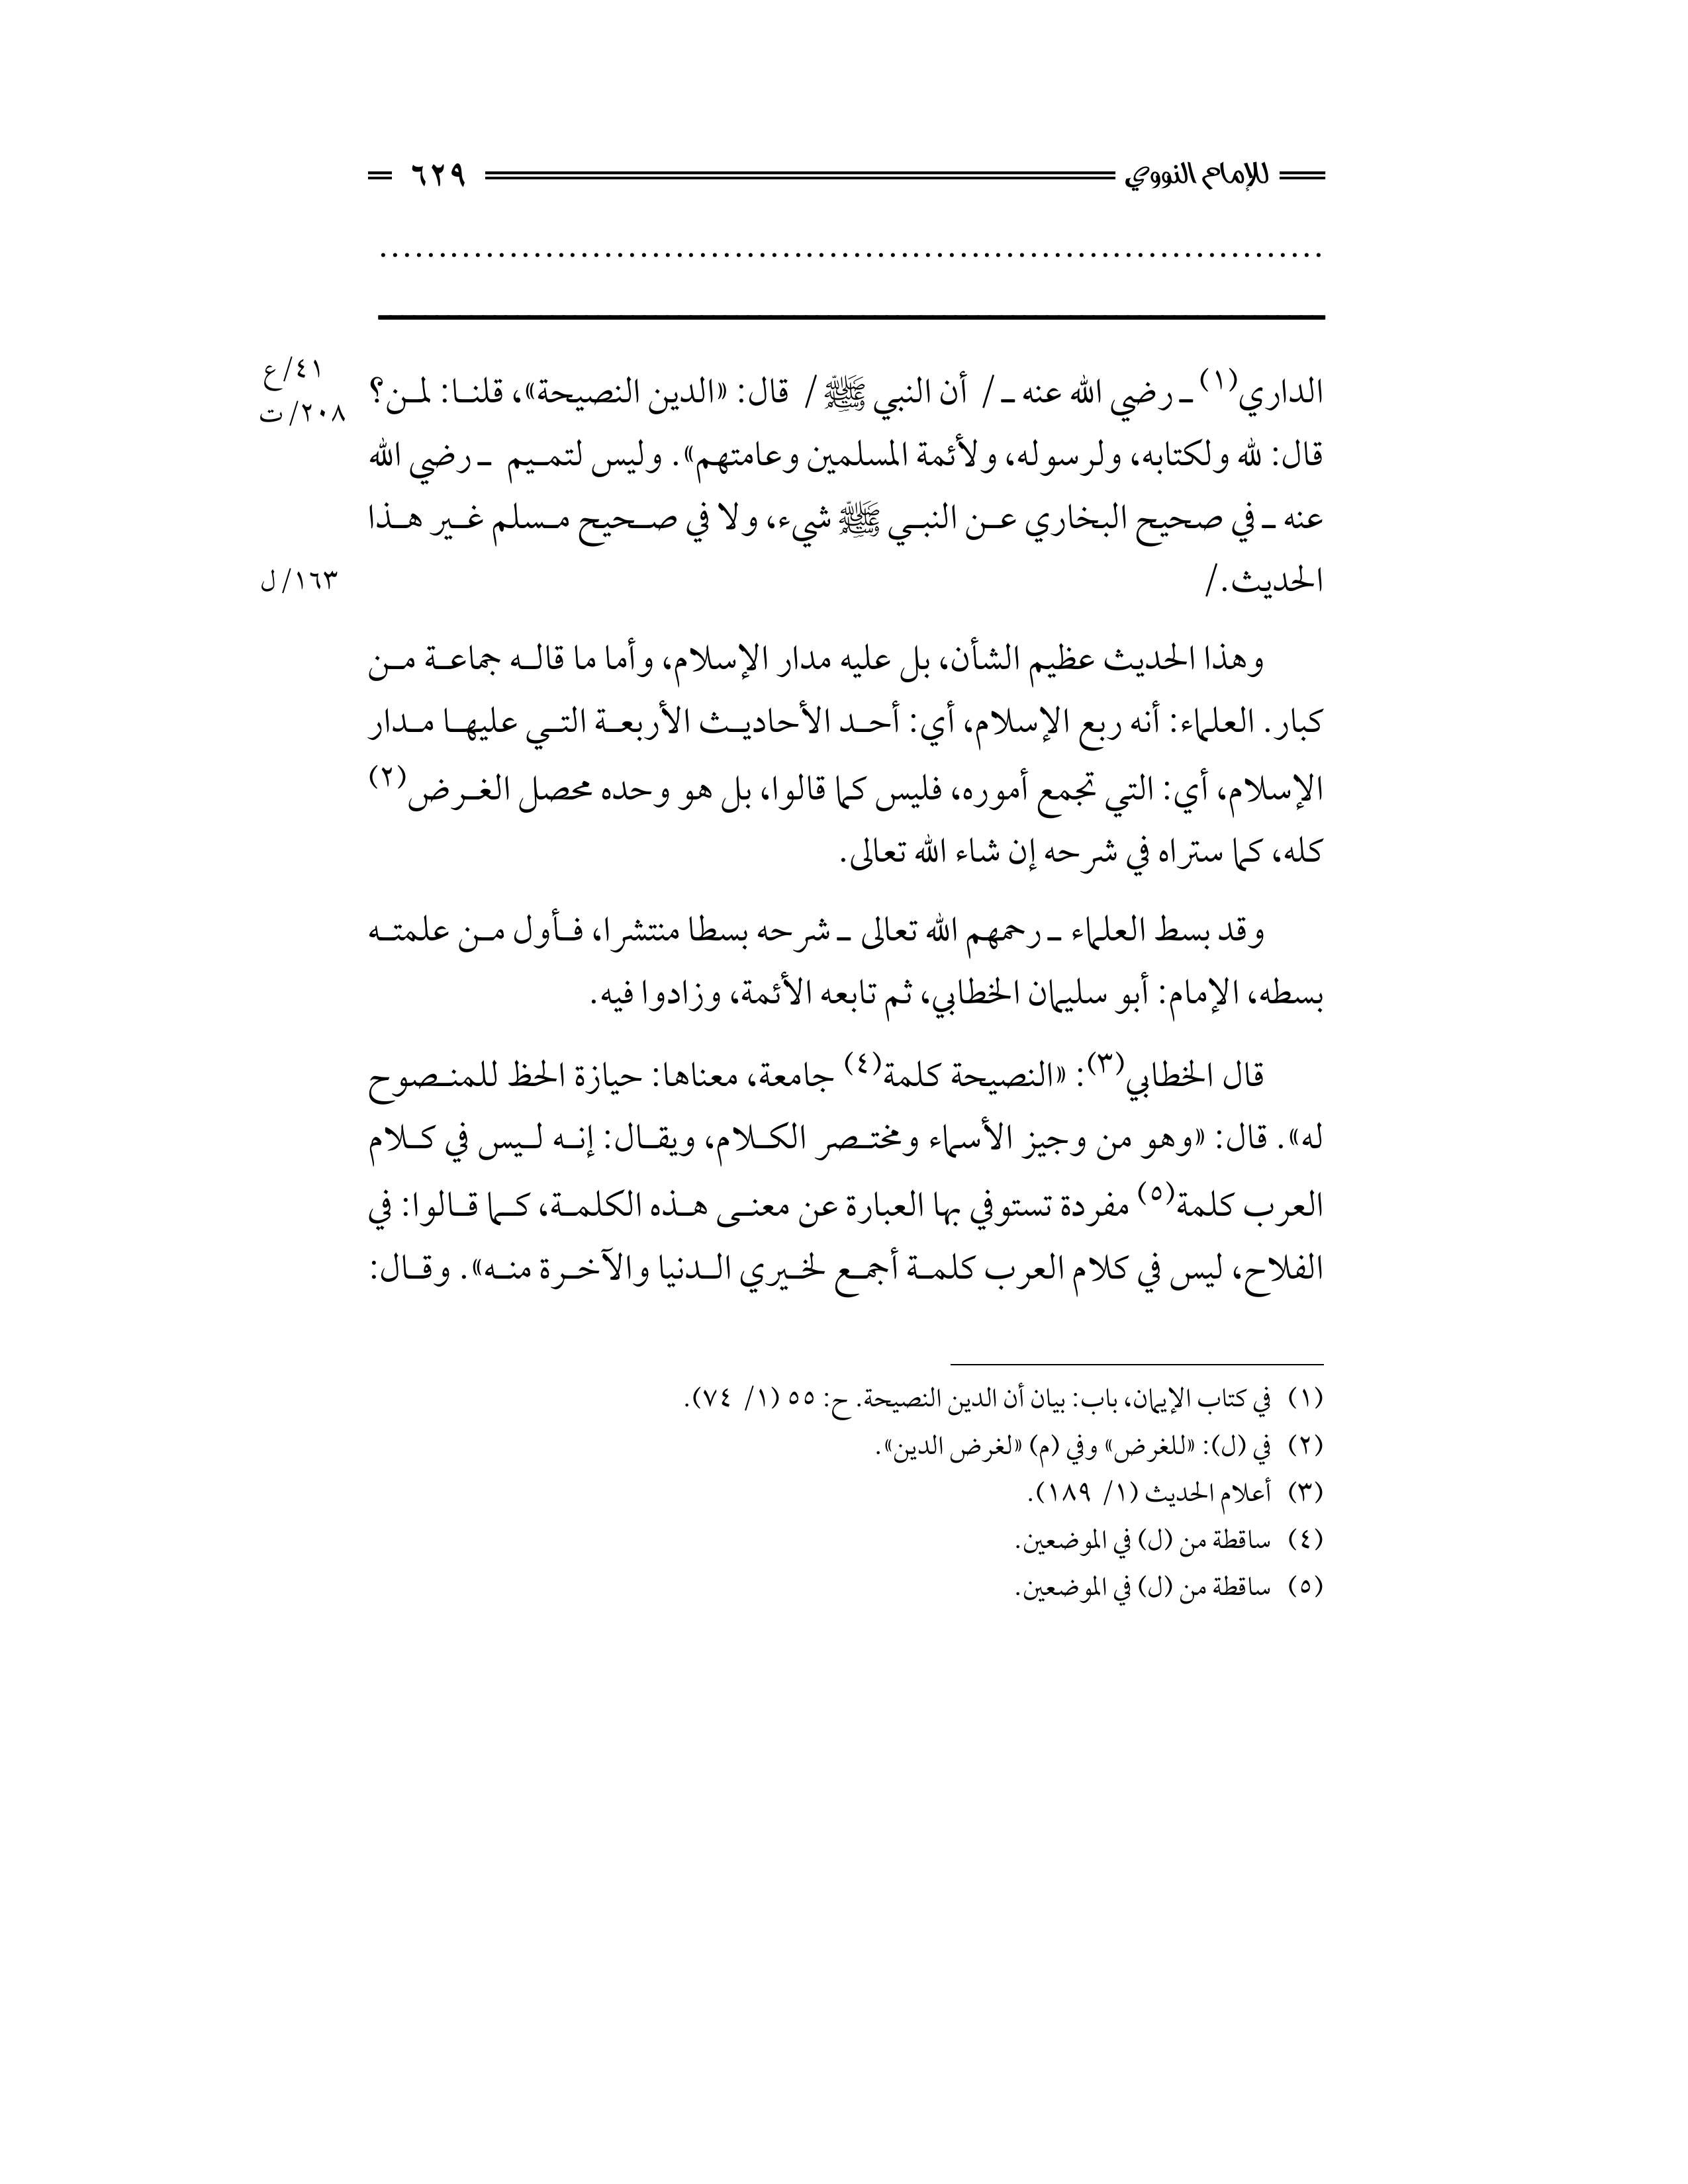 للإمام النووي ٦٢٩
................................................................................
الداري(١) ـ رضي الله عنه ـ / أن النبي ﷺ / قال: «الدين النصيحة»، قلنا: لمن؟
٤١/ع
٢٠٨/ت
قال: لله ولكتابه، ولرسوله، ولأئمة المسلمين وعامتهم». وليس لتميم ـ رضي الله
عنه ـ في صحيح البخاري عن النبي ﷺ شيء، ولا في صحيح مسلم غير هذا
الحديث./
١٦٣/ل
وهذا الحديث عظيم الشأن، بل عليه مدار الإسلام، وأما ما قاله جماعة من
كبار. العلماء: أنه ربع الإسلام، أي: أحد الأحاديث الأربعة التي عليها مدار
الإسلام، أي: التي تجمع أموره، فليس كما قالوا، بل هو وحده محصل الغرض(٢)
كله، كما ستراه في شرحه إن شاء الله تعالى.
وقد بسط العلماء ـ رحمهم الله تعالى ـ شرحه بسطا منتشرا، فأول من علمته
بسطه، الإمام: أبو سليمان الخطابي، ثم تابعه الأئمة، وزادوا فيه.
قال الخطابي(٣): «النصيحة كلمة(٤) جامعة، معناها: حيازة الحظ للمنصوح
له». قال: «وهو من وجيز الأسماء ومختصر الكلام، ويقال: إنه ليس في كلام
العرب كلمة(٥) مفردة تستوفي بها العبارة عن معنى هذه الكلمة، كما قالوا: في
الفلاح، ليس في كلام العرب كلمة أجمع لخيري الدنيا والآخرة منه». وقال:
(١) في كتاب الإيمان، باب: بيان أن الدين النصيحة. ح: ٥٥ (١/ ٧٤).
(٢) في (ل): «للغرض» وفي (م) «لغرض الدين».
(٣) أعلام الحديث (١/ ١٨٩).
(٤) ساقطة من (ل) في الموضعين.
(٥) ساقطة من (ل) في الموضعين.